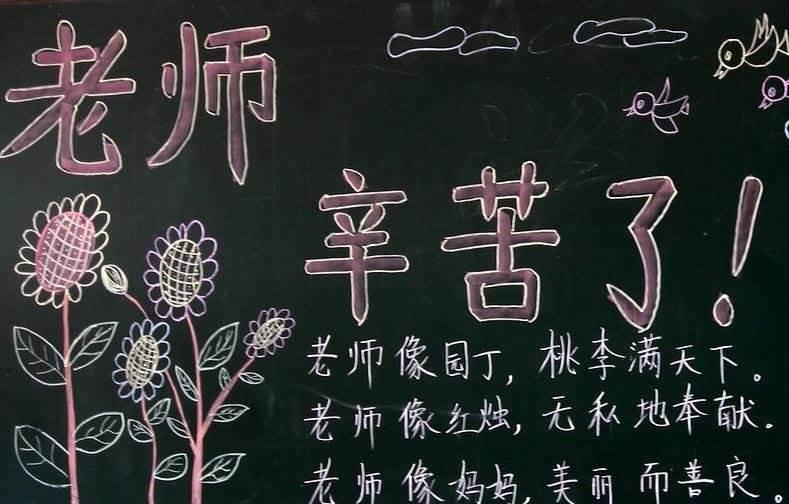 老师
辛苦了！
老师像园丁，桃李满天下。
老师像红烛，无私地奉献。
老师像妈妈，美丽而善良。